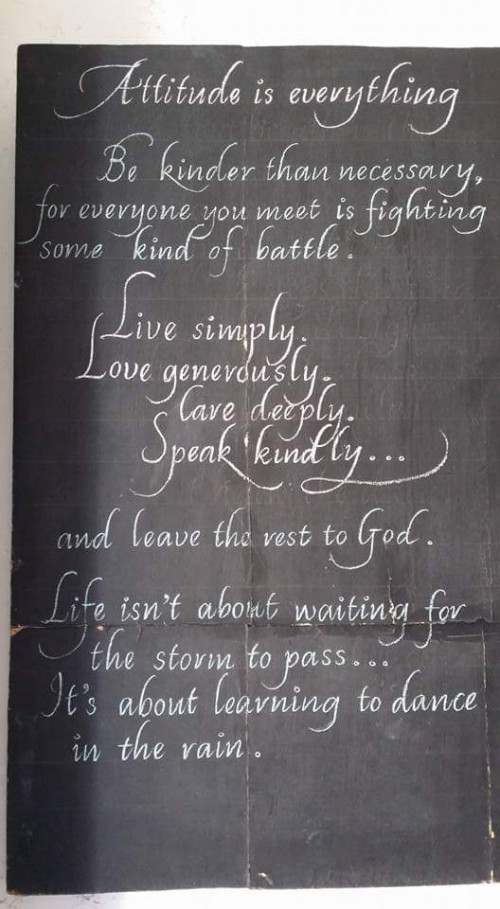 Attitude is everything
Be kinder than necessary,
for everyone you meet is fighting
some kind of battle.
Live simply.
Love generously.
Care deeply.
Speak kindly...
and leave the rest to God.
Life isn't about waiting for
the storm to pass...
It's about learning to dance
in the rain.